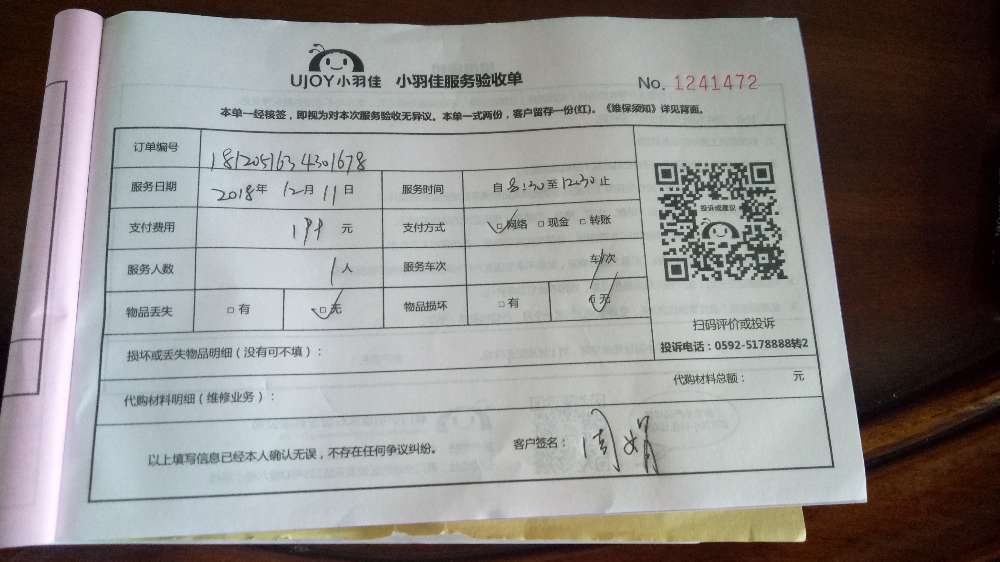 UJOY小羽佳 小羽佳服务验收单
No. 1241472
本单一经核签，即视为对本次服务验收无异议。本单一式两份，客户留存一份(红)。《维保须知》详见背面。
订单编号 1812051634301678
服务日期 2018年 12月 11日 服务时间 自 8:30 至 12:30 止
支付费用 199 元 支付方式 □网络 □现金 □转账
投诉或建议
服务人数 1人 服务车次 车/次
物品丢失 □有 □无 物品损坏 □有 □无
扫码评价或投诉
投诉电话：0592-5178888转2
损坏或丢失物品明细（没有可不填）：
代购材料明细（维修业务）： 代购材料总额： 元
以上填写信息已经本人确认无误，不存在任何争议纠纷。 客户签名：周娟